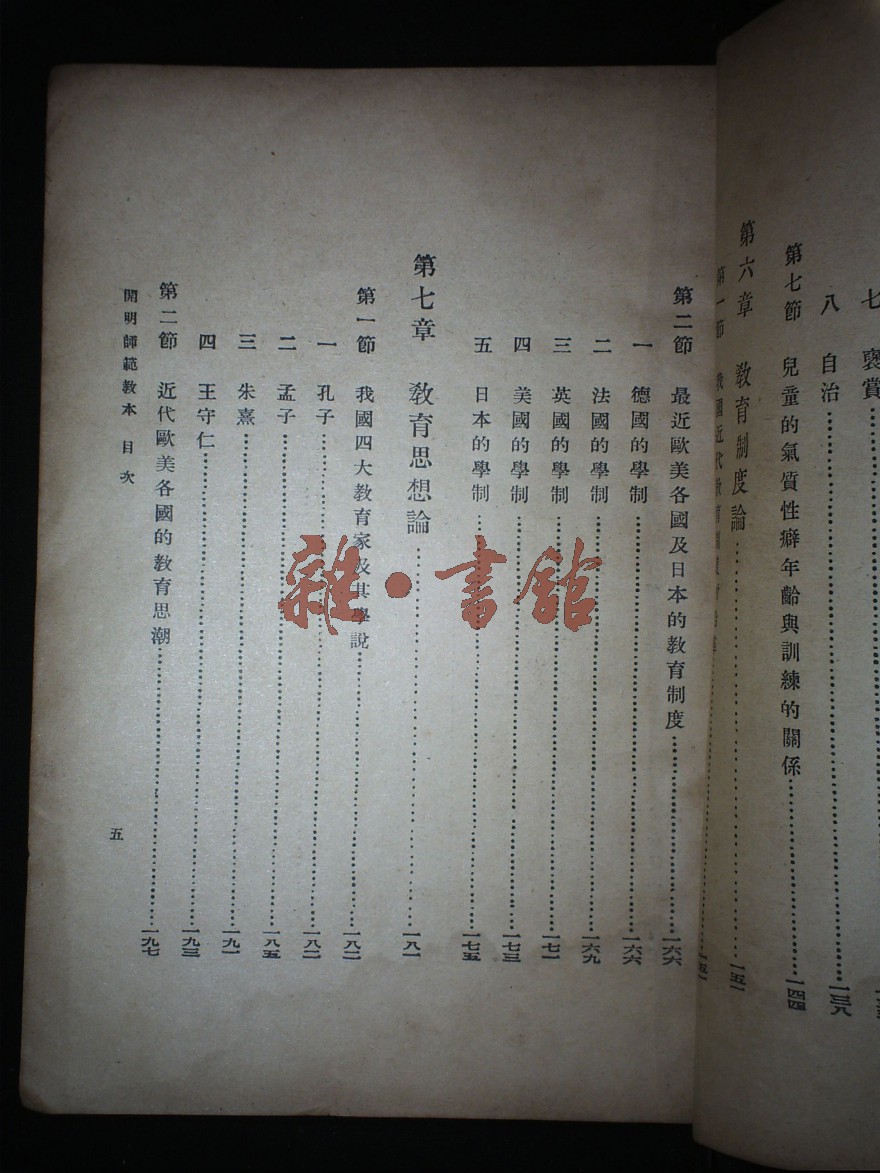 七 褒賞
八 自治……一三八
第七節 兒童的氣質性癖年齡與訓練的關係……一四四
第六章 教育制度論……一五一
第一節 我國近代教育制度
第二節 最近歐美各國及日本的教育制度……一六六
一 德國的學制……一六六
二 法國的學制……一六九
三 英國的學制……一七一
四 美國的學制……一七三
五 日本的學制……一七五
第七章 教育思想論……一八一
第一節 我國四大教育家及其學說……一八二
一 孔子……一八二
二 孟子……一八五
三 朱熹……一九一
四 王守仁……一九三
第二節 近代歐美各國的教育思潮……一九七
開明師範教本 目次
五
雜·書館